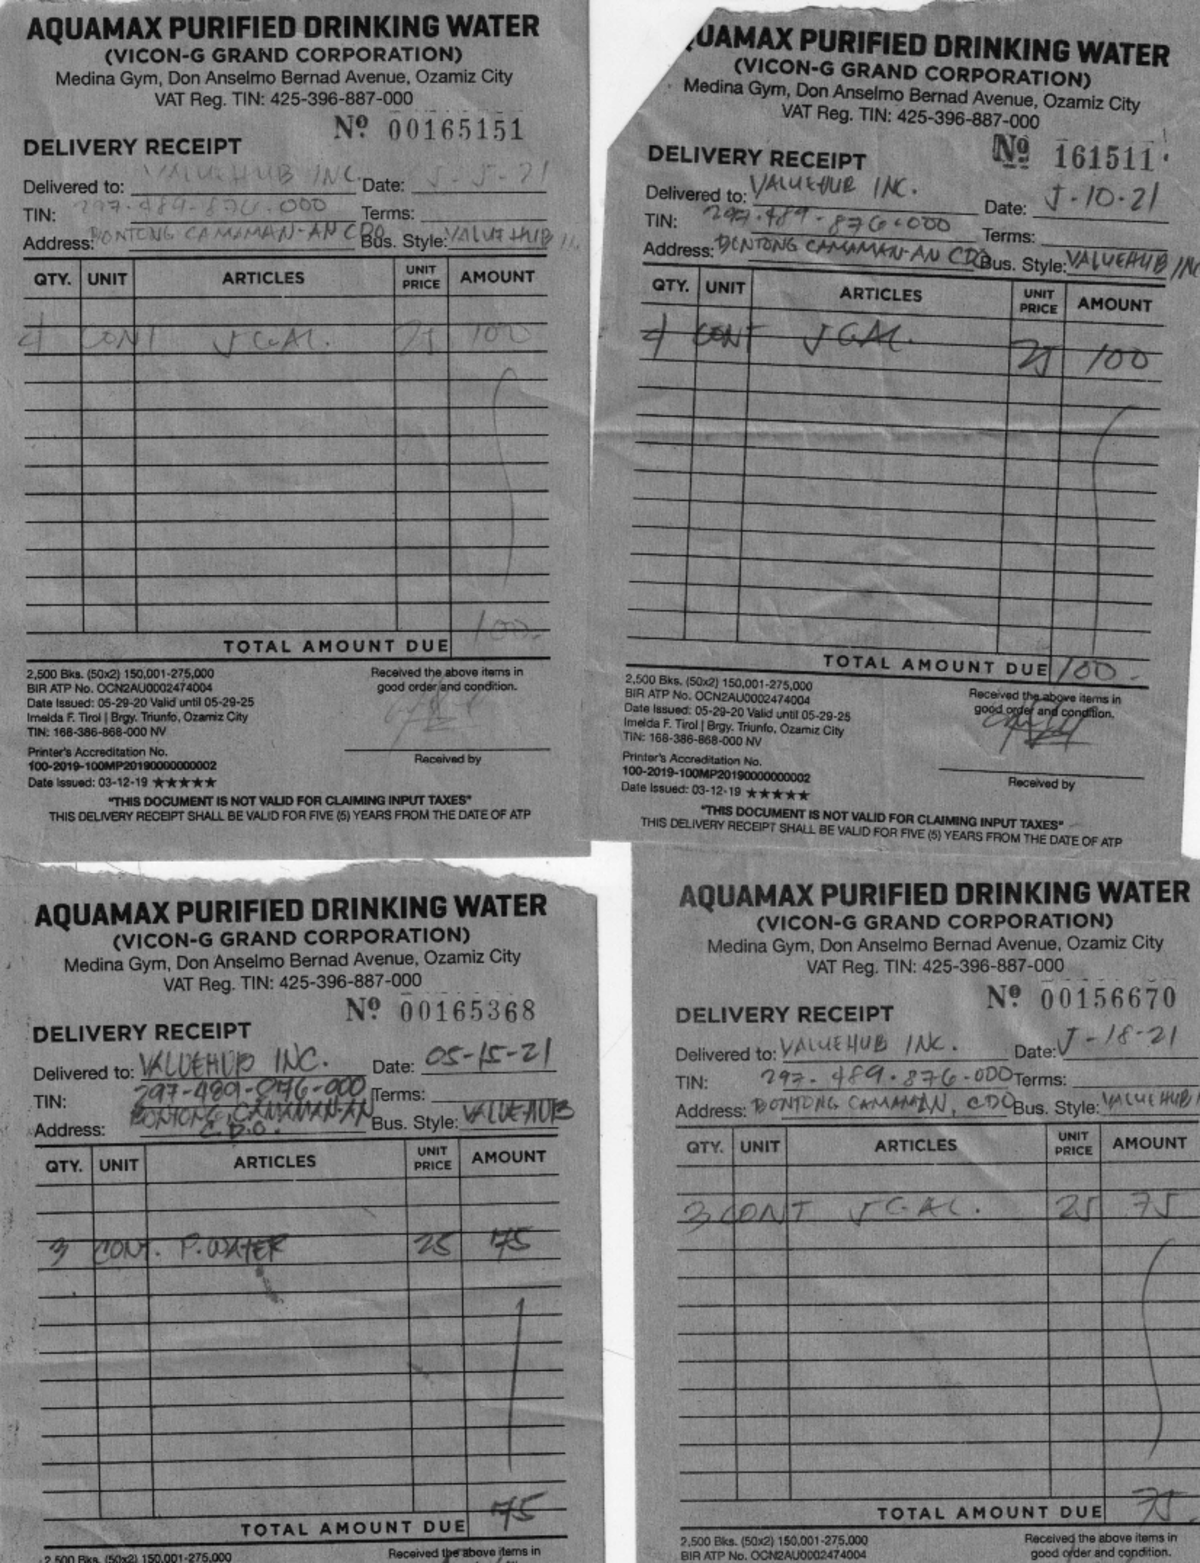 AQUAMAX PURIFIED DRINKING WATER
(VICON-G GRAND CORPORATION)
Medina Gym, Don Anselmo Bernad Avenue, Ozamiz City
VAT Reg. TIN: 425-396-887-000
Nº 00165151
DELIVERY RECEIPT
Delivered to: VALUEHUB INC. Date: 5-5-21
TIN: 297-489-876-000 Terms:
Address: BONTONG CAMAMAN-AN CDO Bus. Style: VALUEHUB
QTY. UNIT ARTICLES UNIT PRICE AMOUNT
4 CONT 5 GAL. 25 100
100.
TOTAL AMOUNT DUE
2,500 Bks. (50x2) 150,001-275,000
BIR ATP No. OCN2AU0002474004
Date Issued: 05-29-20 Valid until 05-29-25
Imelda F. Tirol | Brgy. Triunfo, Ozamiz City
TIN: 168-386-868-000 NV
Printer's Accreditation No.
100-2019-100MP20190000000002
Date Issued: 03-12-19 ★★★★★
Received the above items in
good order and condition.
Received by
"THIS DOCUMENT IS NOT VALID FOR CLAIMING INPUT TAXES"
THIS DELIVERY RECEIPT SHALL BE VALID FOR FIVE (5) YEARS FROM THE DATE OF ATP
QUAMAX PURIFIED DRINKING WATER
(VICON-G GRAND CORPORATION)
Medina Gym, Don Anselmo Bernad Avenue, Ozamiz City
VAT Reg. TIN: 425-396-887-000
Nº 161511
DELIVERY RECEIPT
Delivered to: VALUEHUB INC. Date: 5-10-21
TIN: 297-489-876-000 Terms:
Address: BONTONG CAMAMAN-AN CDO Bus. Style: VALUEHUB INC
QTY. UNIT ARTICLES UNIT PRICE AMOUNT
4 CONT 5 GAL. 25 100
TOTAL AMOUNT DUE 100.
2,500 Bks. (50x2) 150,001-275,000
BIR ATP No. OCN2AU0002474004
Date Issued: 05-29-20 Valid until 05-29-25
Imelda F. Tirol | Brgy. Triunfo, Ozamiz City
TIN: 168-386-868-000 NV
Printer's Accreditation No.
100-2019-100MP20190000000002
Date Issued: 03-12-19 ★★★★★
Received the above items in
good order and condition.
Received by
"THIS DOCUMENT IS NOT VALID FOR CLAIMING INPUT TAXES"
THIS DELIVERY RECEIPT SHALL BE VALID FOR FIVE (5) YEARS FROM THE DATE OF ATP
AQUAMAX PURIFIED DRINKING WATER
(VICON-G GRAND CORPORATION)
Medina Gym, Don Anselmo Bernad Avenue, Ozamiz City
VAT Reg. TIN: 425-396-887-000
Nº 00165368
DELIVERY RECEIPT
Delivered to: VALUEHUB INC. Date: 05-15-21
TIN: 297-489-876-000 Terms:
Address: BONTONG CAMAMAN-AN Bus. Style: VALUE HUB
C.D.O.
QTY. UNIT ARTICLES UNIT PRICE AMOUNT
3 CONT. P. WATER 25 75
75
TOTAL AMOUNT DUE
2,500 Bks. (50x2) 150,001-275,000
Received the above items in
AQUAMAX PURIFIED DRINKING WATER
(VICON-G GRAND CORPORATION)
Medina Gym, Don Anselmo Bernad Avenue, Ozamiz City
VAT Reg. TIN: 425-396-887-000
Nº 00156670
DELIVERY RECEIPT
Delivered to: VALUEHUB INC. Date: 5-18-21
TIN: 297-489-876-000 Terms:
Address: BONTONG CAMAMAN, CDO Bus. Style: VALUEHUB
QTY. UNIT ARTICLES UNIT PRICE AMOUNT
3 CONT 5 GAL. 25 75
TOTAL AMOUNT DUE 75
2,500 Bks. (50x2) 150,001-275,000
BIR ATP No. OCN2AU0002474004
Received the above items in
good order and condition.